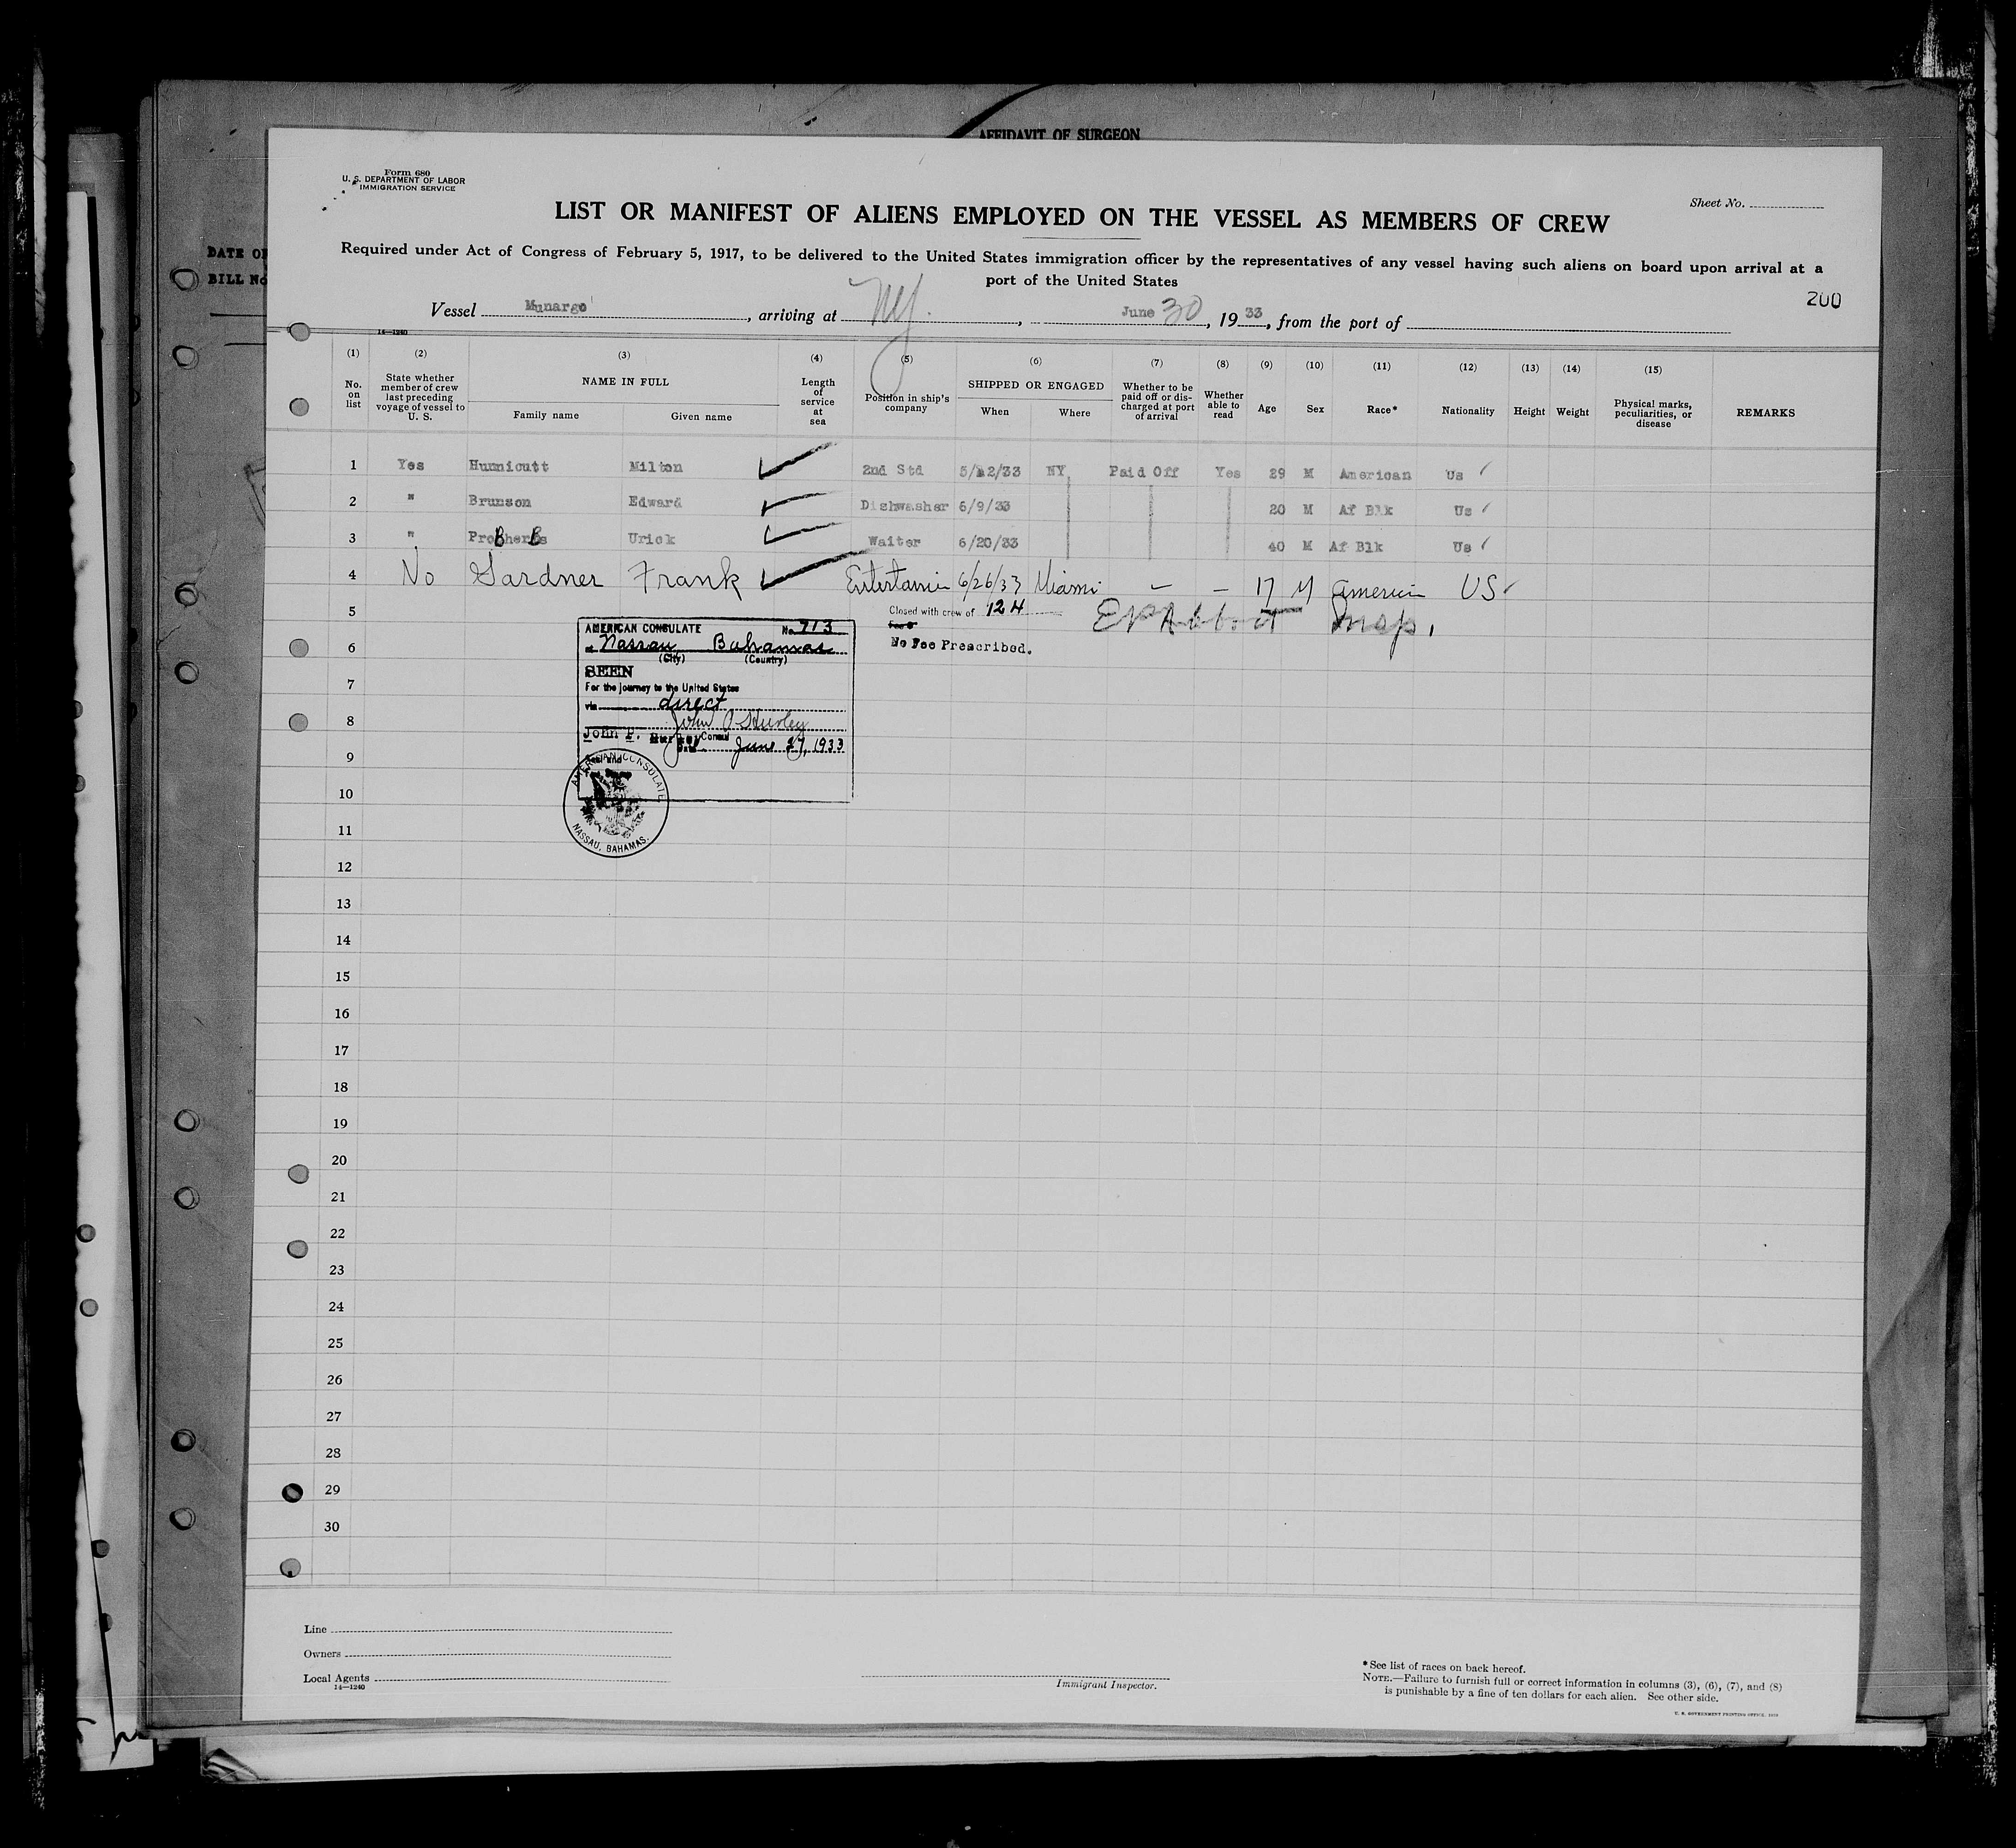 AFFIDAVIT OF SURGEON
Form 680
U. S. DEPARTMENT OF LABOR
IMMIGRATION SERVICE
Sheet No.
LIST OR MANIFEST OF ALIENS EMPLOYED ON THE VESSEL AS MEMBERS OF CREW
DATE OF
BILL No
Required under Act of Congress of February 5, 1917, to be delivered to the United States immigration officer by the representatives of any vessel having such aliens on board upon arrival at a
port of the United States
200
Vessel Munargo, arriving at NY., June 30, 1933, from the port of
14—1240
(1) (2) (3) (4) (5) (6) (7) (8) (9) (10) (11) (12) (13) (14) (15)
No. on list
State whether member of crew last preceding voyage of vessel to U. S.
NAME IN FULL
Family name Given name
Length of service at sea
Position in ship's company
SHIPPED OR ENGAGED
When Where
Whether to be paid off or discharged at port of arrival
Whether able to read
Age Sex Race* Nationality Height Weight
Physical marks, peculiarities, or disease
REMARKS
1 Yes Hunnicutt Milton 2nd Std 5/12/33 NY Paid Off Yes 29 M American Us
2 " Brunson Edward Dishwasher 6/9/33 20 M Af Blk Us
3 " Urick Waiter 6/20/33 40 M Af Blk Us
4 No Gardner Frank 6/26/33 Miami — — 17 M US
5 Closed with crew of 124 Insp.
No Fee Prescribed.
AMERICAN CONSULATE No. 713
at Nassau Bahamas
(City) (Country)
SEEN
For the journey to the United States
via direct
John P. Hurley
John P. Hurley Consul
June 27, 1933
AMERICAN CONSULATE
NASSAU, BAHAMAS.
6
7
8
9
10
11
12
13
14
15
16
17
18
19
20
21
22
23
24
25
26
27
28
29
30
Line
Owners
Local Agents
14—1240
Immigrant Inspector.
* See list of races on back hereof.
NOTE.—Failure to furnish full or correct information in columns (3), (6), (7), and (8)
is punishable by a fine of ten dollars for each alien. See other side.